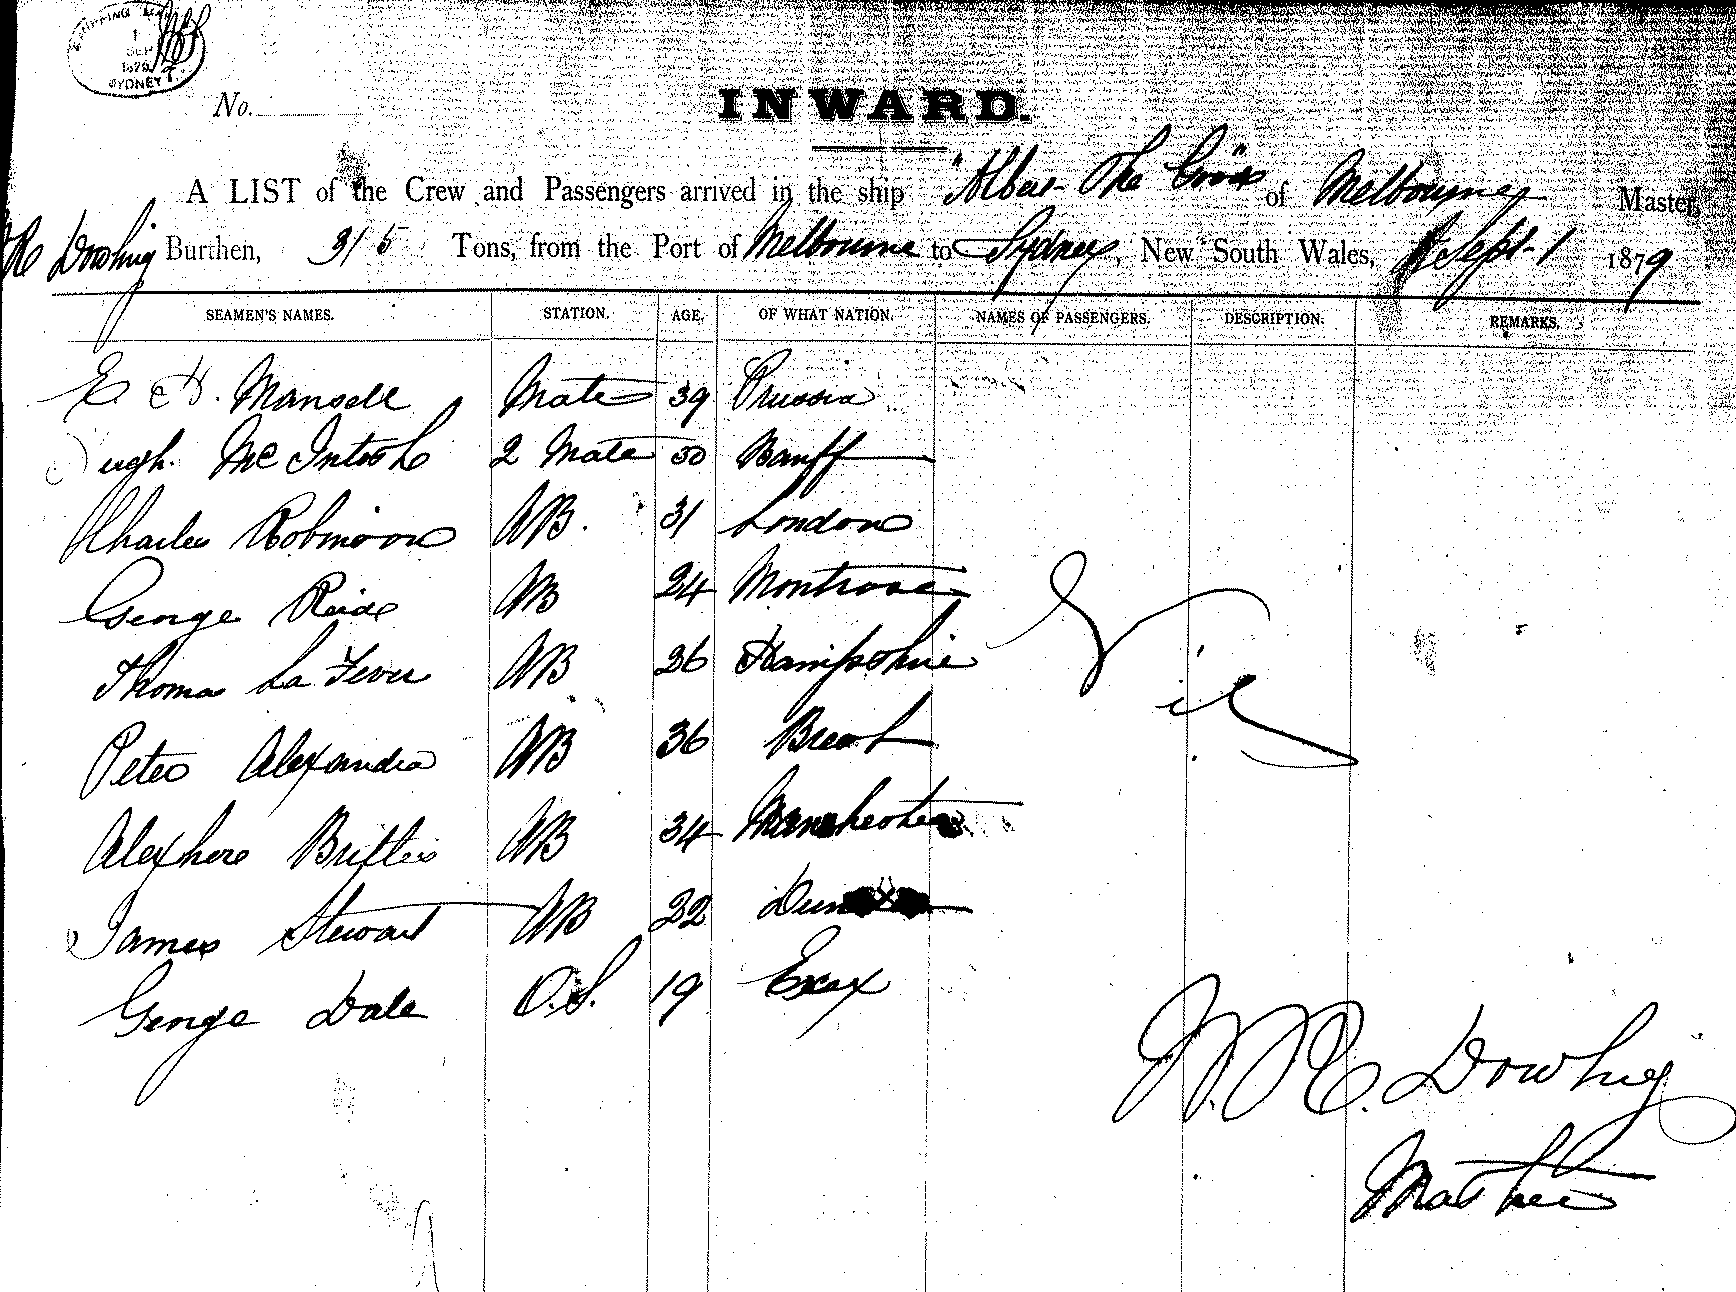 SHIPPING
1
SEP
1879
SYDNEY
No.
INWARD.
A LIST of the Crew and Passengers arrived in the ship "Albert The Good" of Melbourne, Master,
Burthen, 315 Tons, from the Port of Melbourne to Sydney, New South Wales, Sept 1 1879
SEAMEN'S NAMES. STATION. AGE. OF WHAT NATION. NAMES OF PASSENGERS. DESCRIPTION. REMARKS.
E H. Mansell Mate 39 Prussia
Hugh McIntosh 2 Mate 30 Banff
Charles Robinson AB. 31 London
George Reid AB 24 Montrose
Thomas La Fever AB 26 Hampshire
Nil
Peter Alexander AB 36 Brest
AB 34 Manchester
James Stewart AB 22
George Dale O.S. 19 Esex